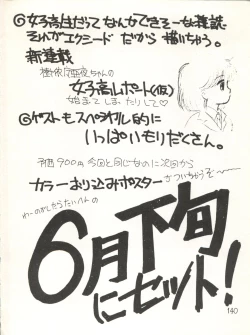 ◎女子高生だってなんかできそーな雑誌
それがエクシードだから描いちゃう。
新連載
亜夜ちゃんの
女子高生レポート(仮)
始まてしまったりして♡
◎ゲストもスペシャル的に
いっぱいもりだくさん。
予価900円 今回と同じなのに次回から
カラーおり込みポスター
がついちゃうぞ〜
6月下旬
にセット!
140